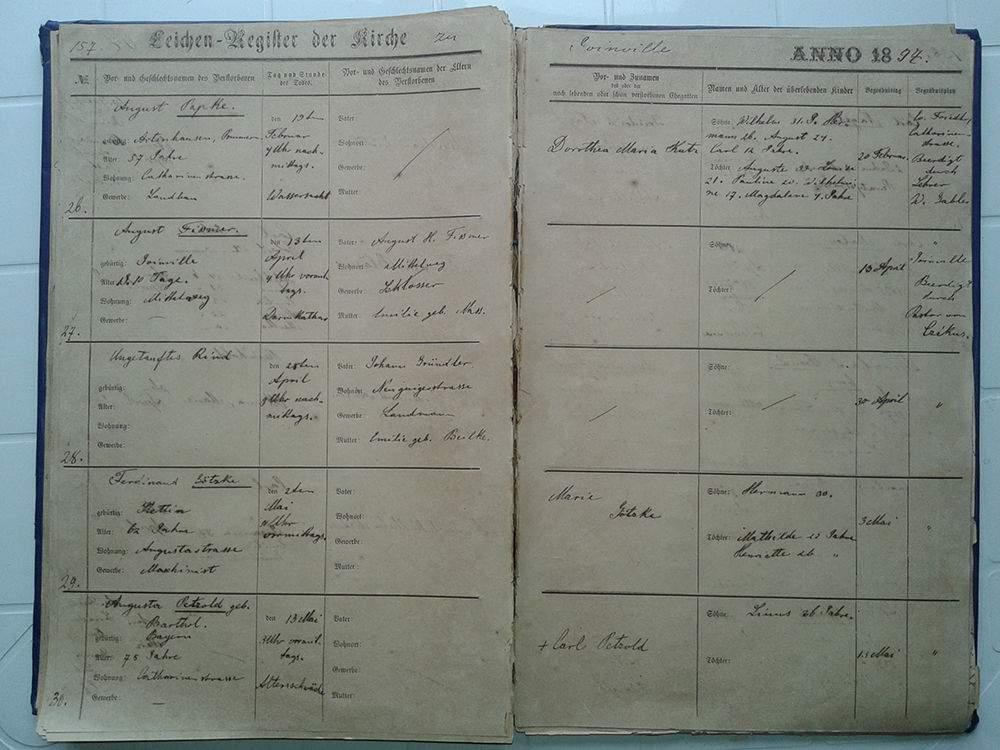 157 Leichen-Register der Kirche zu
Joinville ANNO 1897.
№ Vor- und Geschlechtsnamen des Verstorbenen Tag und Stunde des Todes. Vor- und Geschlechtsnamen der Eltern des Verstorbenen
Vor- und Zunamen des oder der noch lebenden oder schon verstorbenen Ehegatten Namen und Alter der überlebenden Kinder Begräbnistag Begräbnisplan
26.
August Papke.
gebürtig: Pommern
Alter: 57 Jahre
Wohnung: Catharinenstrasse
Gewerbe: Landbau
den 19ten
Februar
4 Uhr nach-
mittags.
Wassersucht
Vater:
Wohnort:
Gewerbe:
Mutter:
Dorothea Maria
Söhne: Wilhelm 31. Her-
mann 26. August 24.
Carl 12 Jahre.
Töchter: Auguste Louise
21. Pauline 20. Wilhelmi-
ne 17. Magdalena 7. Jahre
20 Februar.
Catharinen-
strasse.
Beerdigt
durch
Lehrer
27.
August Fissmer.
gebürtig: Joinville
Alter: 10 Tage.
Wohnung: Mittelweg
Gewerbe: —
den 13ten
April
4 Uhr vormit-
tags.
Darmkatarr
Vater: August H. Fissmer
Wohnort: Mittelweg
Gewerbe: Schlosser
Mutter: Emilie geb. Nass.
Söhne:
Töchter:
13 April
"
Joinville
Beerdigt
durch
Pastor von
Czekus.
28.
Ungetauftes Kind
gebürtig:
Alter:
Wohnung:
Gewerbe:
den
April
9 Uhr nach-
mittags.
Vater: Johann Gründler
Wohnort:
Gewerbe: Landmann
Mutter: Emilie geb.
Söhne:
Töchter:
30 April
"
29.
Ferdinand Götzke
gebürtig: Stettin
Alter: 62 Jahre
Wohnung: Augustastrasse
Gewerbe: Maschinist
den 2ten
Mai
Uhr
vormittags.
Vater:
Wohnort:
Gewerbe:
Mutter:
Marie
Götzke
Söhne: Hermann 30.
Töchter: Mathilde Jahre
Henriette 26 "
3 Mai
"
30.
Auguste Petzold geb.
Barthol.
gebürtig: Bayern
Alter: 75 Jahre
Wohnung: Catharinenstrasse
Gewerbe: —
den 13 Mai
Uhr vormit-
tags.
Altersschwäche
Vater:
Wohnort:
Gewerbe:
Mutter:
+ Carl Petzold
Söhne: Linus 26 Jahre.
Töchter:
Mai
"